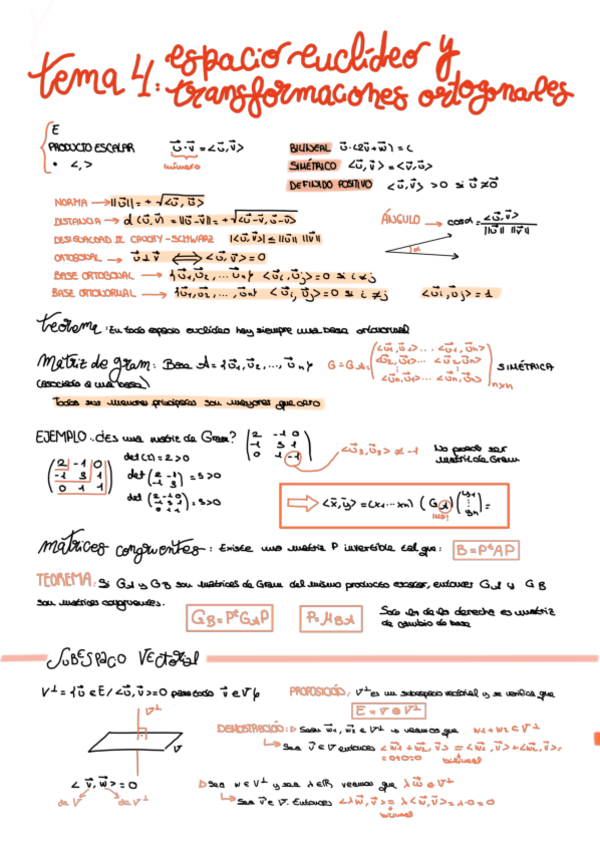 tema 4: espacio euclídeo y
transformaciones ortogonales
E
PRODUCTO ESCALAR u⃗·v⃗ = <u⃗,v⃗> BILINEAL
número
• <,> SIMÉTRICO <u⃗,v⃗> = <v⃗,u⃗>
DEFINIDO POSITIVO <u⃗,v⃗> >0 si u⃗≠0⃗
NORMA → ||u⃗|| = +√<u⃗,u⃗>
DISTANCIA → d(u⃗,v⃗) = ||u⃗-v⃗|| = +√<u⃗-v⃗,u⃗-v⃗> ÁNGULO → cosα = <u⃗,v⃗> / ||u⃗|| ||v⃗||
DESIGUALDAD DE CAUCHY-SCHWARZ |<u⃗,v⃗>| ≤ ||u⃗|| ||v⃗||
α
ORTOGONAL → u⃗⊥v⃗ ⟺ <u⃗,v⃗> = 0
BASE ORTOGONAL → {u⃗1,u⃗2,...u⃗n} <u⃗i,u⃗j> = 0 si i≠j
BASE ORTONORMAL → {u⃗1,u⃗2,...u⃗n} <u⃗i,u⃗j> = 0 si i≠j <u⃗i,u⃗j> = 1
teorema: En todo espacio euclídeo hay siempre una base ortonormal
Matriz de gram: Base A = {u⃗1,u⃗2,...,u⃗n} G = GA = (<u⃗1,u⃗1>...<u⃗1,u⃗n> <u⃗2,u⃗1>...<u⃗2,u⃗n> <u⃗n,u⃗1>...<u⃗n,u⃗n>) n×n SIMÉTRICA
(asociada a una base)
Todos sus menores principales son mayores que cero
EJEMPLO: ¿Es una matriz de Gram? (2 -1 0 / -1 3 1 / 0 1 -1) <u⃗3,u⃗3> ≠ -1 No puede ser
matriz de Gram
(2 -1 0 / -1 3 1 / 0 1 1) det(2) = 2 > 0
det (2 -1 / -1 3) = 5 > 0
det (2 -1 0 / -1 3 1 / 0 1 1) = 3 > 0
⇒ <x⃗,y⃗> = (x1...xn) (GA) (y1 ⋮ yn) =
matrices congruentes: Existe una matriz P invertible tal que: B = PᵗAP
TEOREMA: Si GA y GB son matrices de Gram del mismo producto escalar, entonces GA y GB
son matrices congruentes.
GB = PᵗGAP P = MBA Solo la de la derecha es matriz
de cambio de base
SUBESPACIO VECTORIAL
V⊥ = {u⃗∈E / <u⃗,v⃗> = 0 para todo v⃗∈V} PROPOSICIÓN: V⊥ es un subespacio vectorial y se verifica que
V⊥ E = V⊕V⊥
V
DEMOSTRACIÓN: Sean w1, w2 ∈ V⊥ y veamos que w1+w2 ∈ V⊥
Sea v⃗∈V entonces <w⃗1+w⃗2, v⃗> = <w⃗1,v⃗>+<w⃗2,v⃗> =
= 0+0 = 0 bilineal
<v⃗,w⃗> = 0
de V de V⊥
Sea w∈V⊥ y sea λ∈ℝ, veamos que λw⃗∈V⊥
Sea v⃗∈V. Entonces <λw⃗,v⃗> = λ<w⃗,v⃗> = λ·0 = 0
bilineal